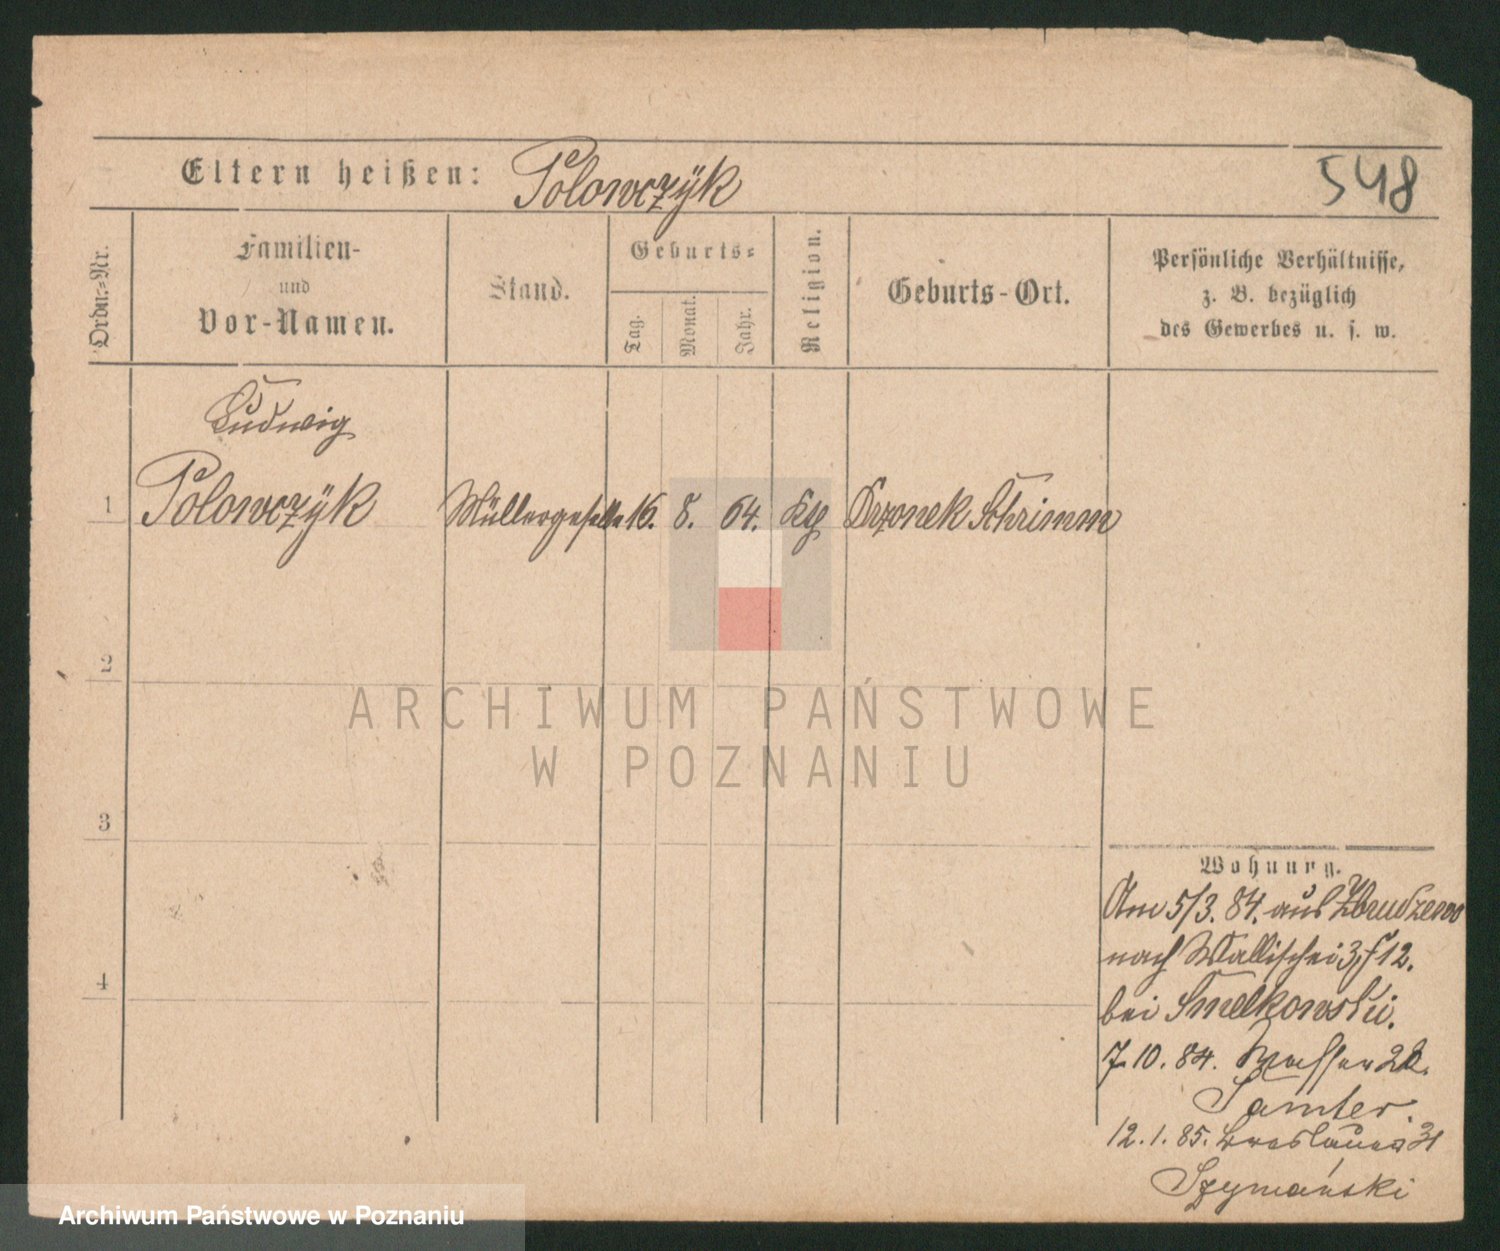 Eltern heißen: Polowczÿk
548
Ordn.-Nr.
Familien-
und
Vor-Namen.
Stand.
Geburts-
Tag.
Monat.
Jahr.
Religion.
Geburts-Ort.
Persönliche Verhältnisse,
z. B. bezüglich
des Gewerbes u. s. w.
Ludwig
1 Polowczÿk Müllergeselle 16. 8. 64. Kth Drzonek Schrimm
2
ARCHIWUM PAŃSTWOWE
W POZNANIU
3
Wohnung.
Am 5/3. 84. aus
nach Wallischei 12.
4
bei Smelkowski.
7.10. 84. Wasser
Tamter.
12.1.85. Breslauer 31
Szymański
Archiwum Państwowe w Poznaniu